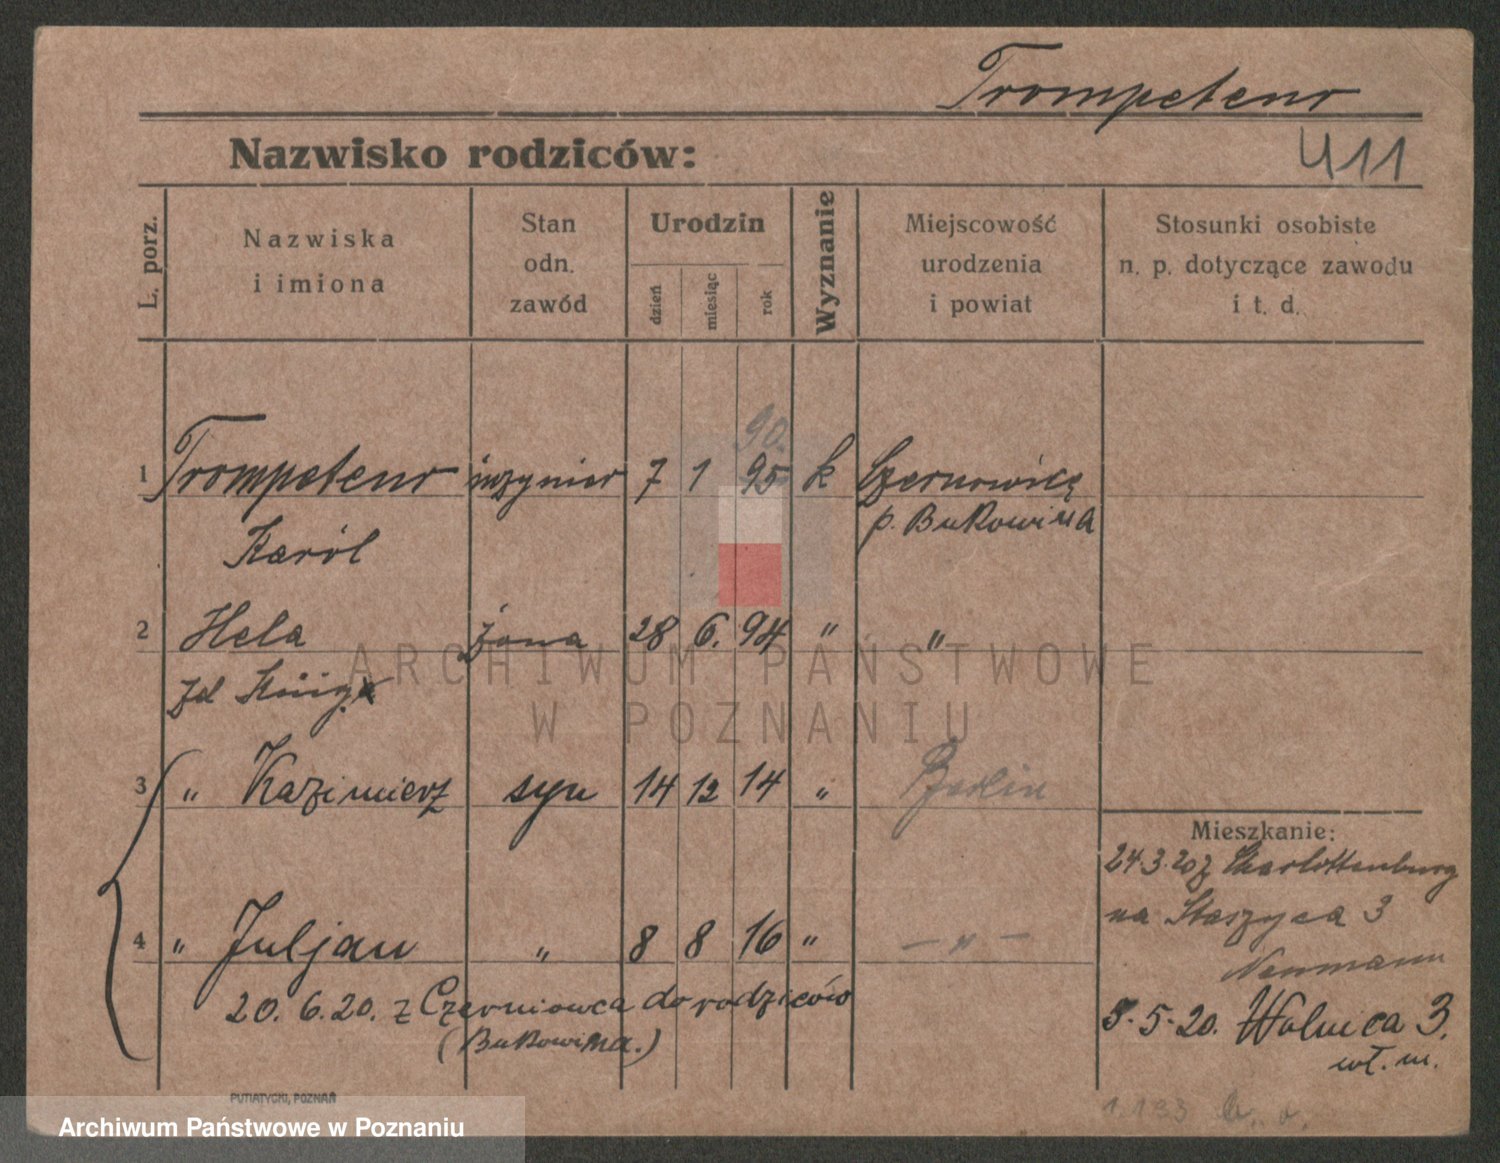 Trompeteur
411
Nazwisko rodziców:
L. porz.
Nazwiska
i imiona
Stan
odn.
zawód
Urodzin
dzień
miesiąc
rok
Wyznanie
Miejscowość
urodzenia
i powiat
Stosunki osobiste
n. p. dotyczące zawodu
i t. d.
90.
1 Trompeteur inżynier 7 1 95 k Czernowicę
Karól p. Bukowina
2 Hela żona 28 6. 94 " "
zd
3 " Kazimierz syn 14 12 14 " Berlin
Mieszkanie:
24.3.20 z Charlottenburg
na Staszyca 3
Neumann
4 " Juljan " 8 8 16 " — " —
20. 6. 20. z Czerniowca do rodziców
(Bukowina.)
5. 20. Wolnica 3.
wł. m.
PUTIATYCKI, POZNAŃ
ARCHIWUM PAŃSTWOWE
W POZNANIU
Archiwum Państwowe w Poznaniu